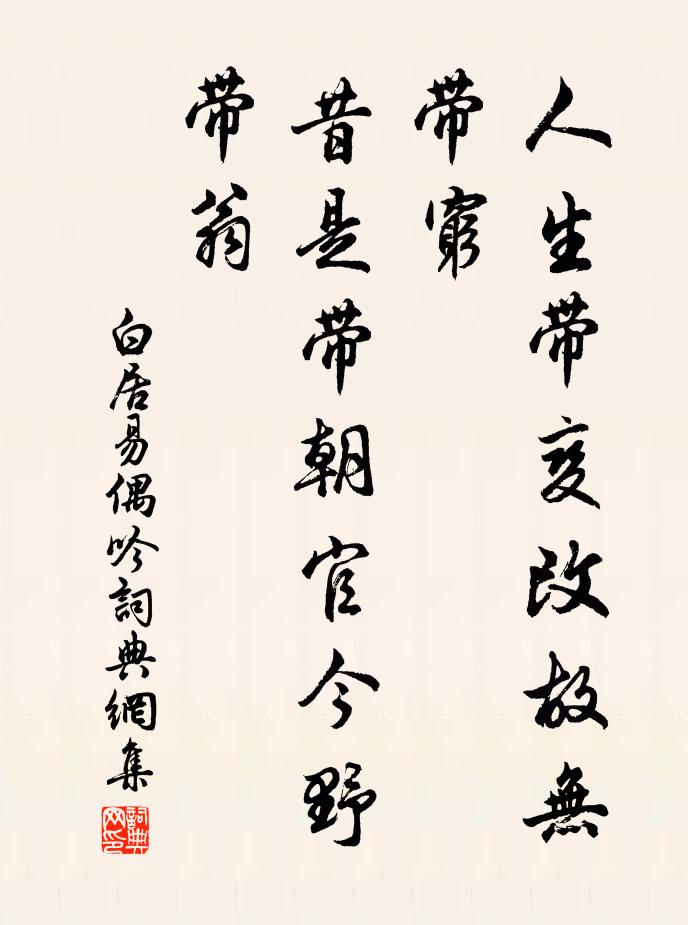 人生帶変改故無
帶窮
昔是帶朝官今野
帶翁
白居易偶吟詞典網集
詞典網印